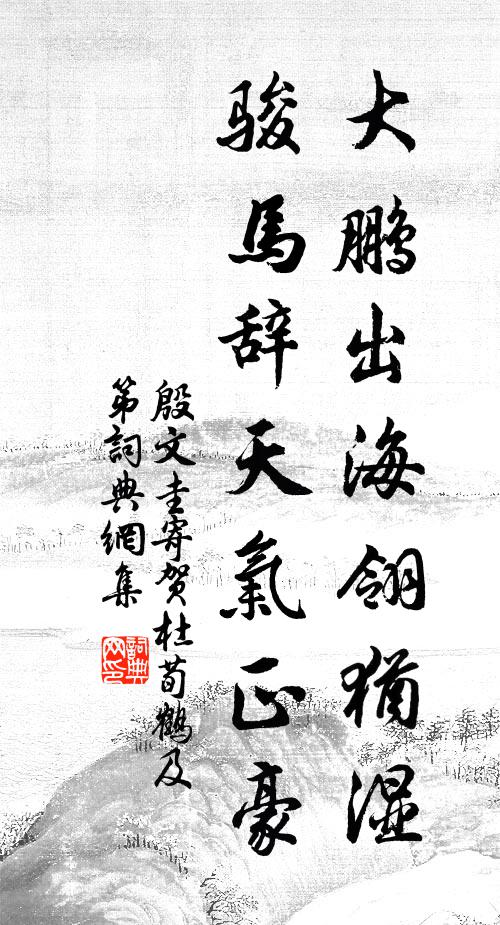 大鹏出海翎犹湿
骏馬辞天氣正豪
殷文圭寄贺杜荀鶴及
第詞典網集
詞典网印